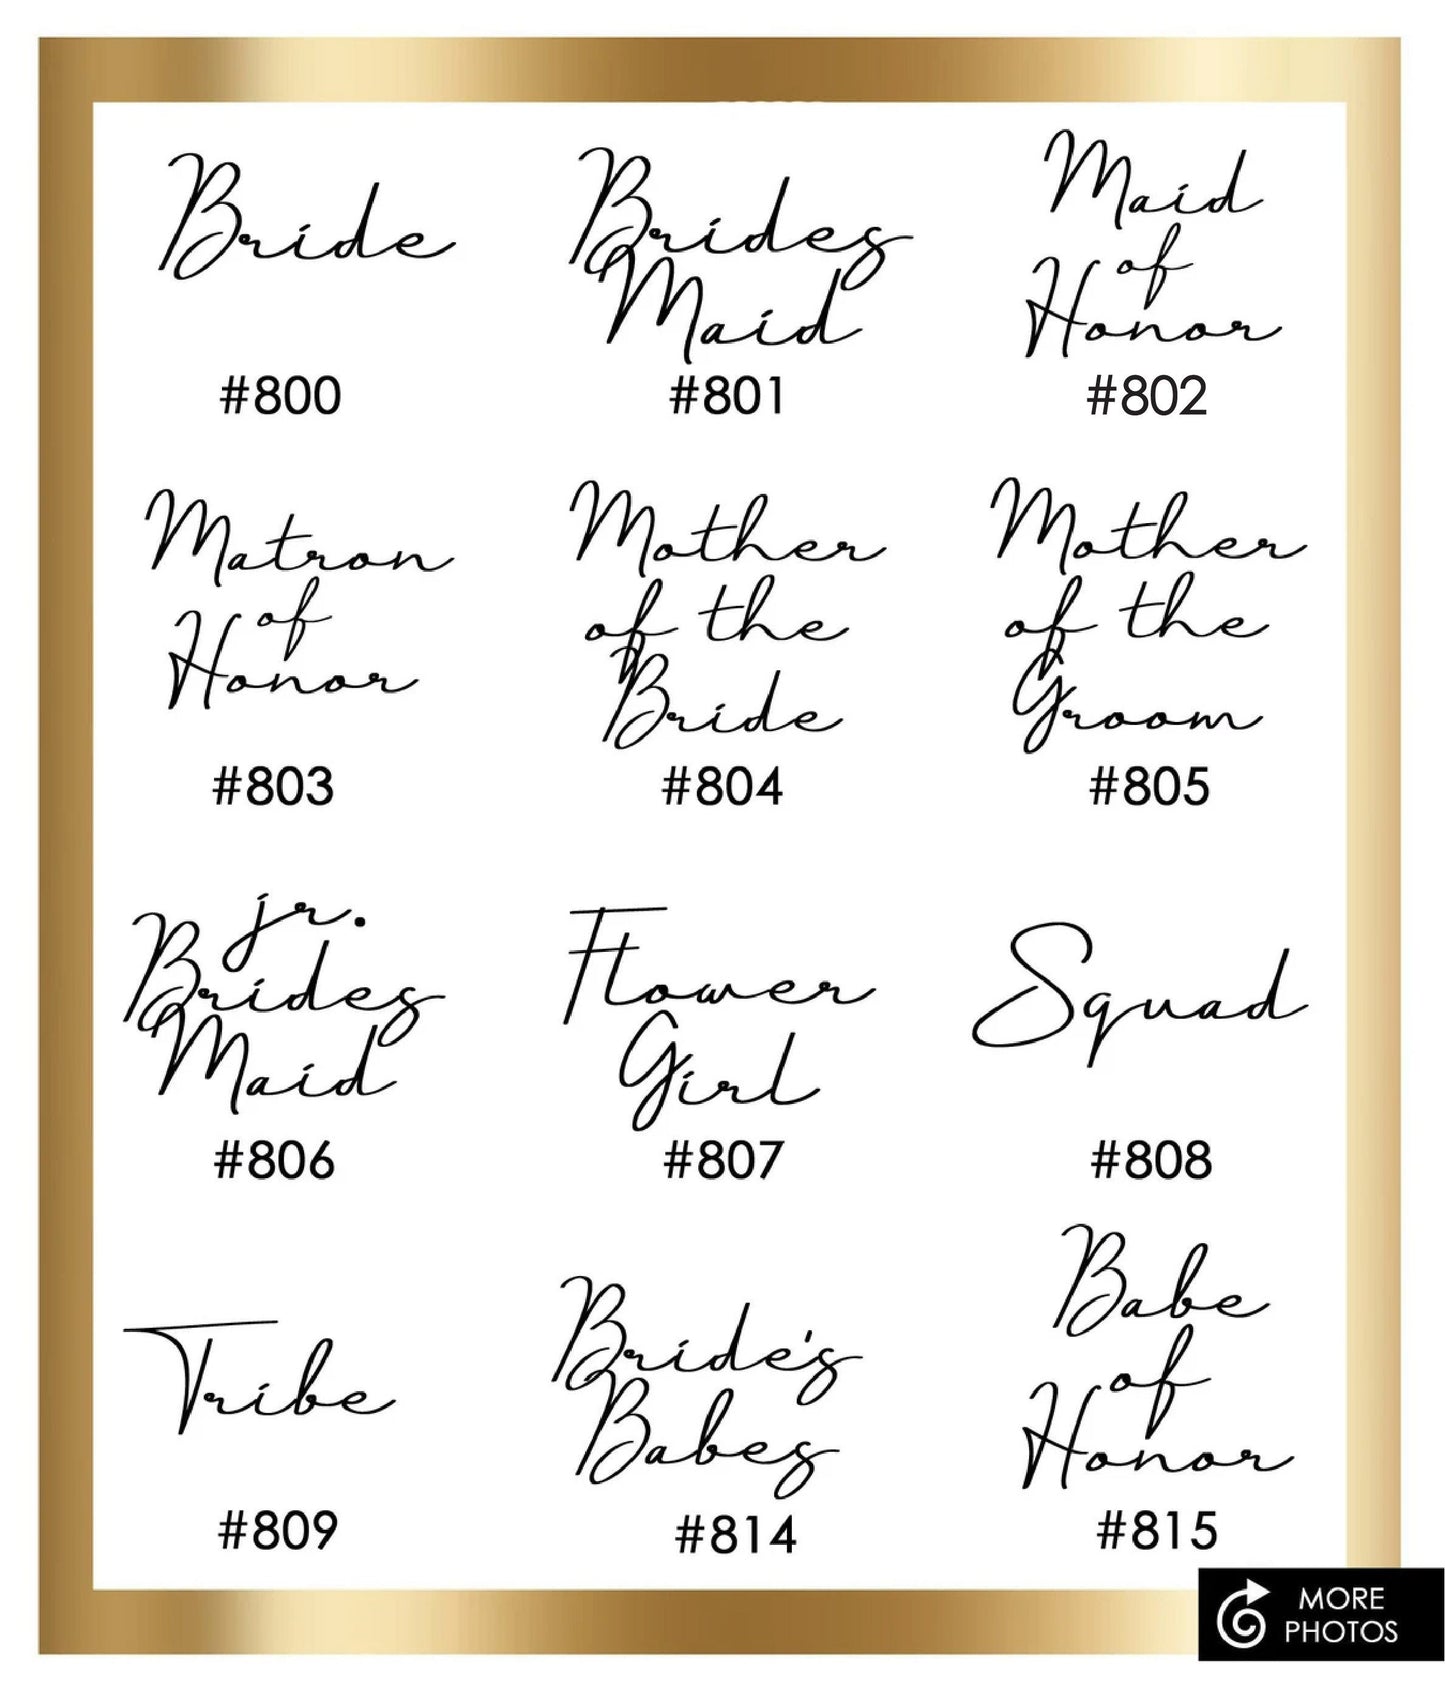 Bride
#800
Brides
Maid
#801
Maid
of
Honor
#802
Matron
of
Honor
#803
Mother
of the
Bride
#804
Mother
of the
Groom
#805
jr.
Brides
Maid
#806
Flower
Girl
#807
Squad
#808
Tribe
#809
Bride's
Babes
#814
Babe
of
Honor
#815
MORE
PHOTOS